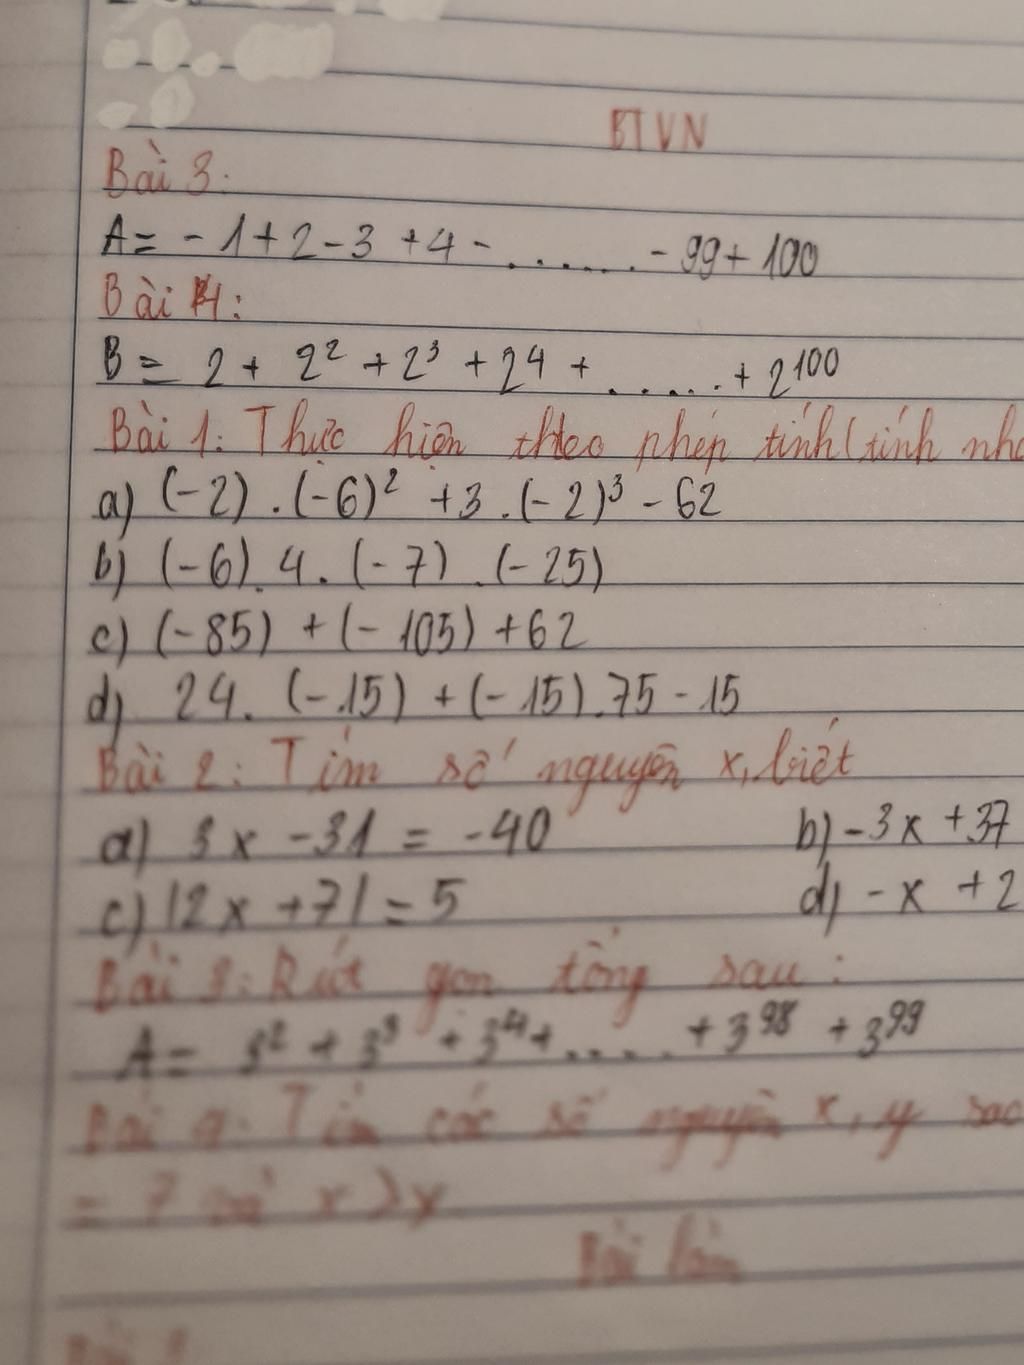 BTVN
Bài 3:
A = - 1 + 2 - 3 + 4 - ....... - 99 + 100
Bài 4:
B = 2 + 2² + 2³ + 2⁴ + ...... + 2¹⁰⁰
Bài 1: Thực hiện theo phép tính (tính nha
a) (-2) . (-6)² + 3 . (-2)³ - 62
b) (-6) . 4 . (-7) . (-25)
c) (-85) + (-105) + 62
d) 24 . (-15) + (-15) . 75 - 15
Bài 2: Tìm số nguyên x, biết
a) 3x - 31 = -40 b) -3x + 37
c) |2x + 7| = 5 d) -x + 2
Bài 3: Rút gọn tổng sau:
A = 3² + 3³ + 3⁴ + ..... + 3⁹⁸ + 3⁹⁹
Bài 4: Tìm các số nguyên x, y sao
= 7 x > y
Bài làm